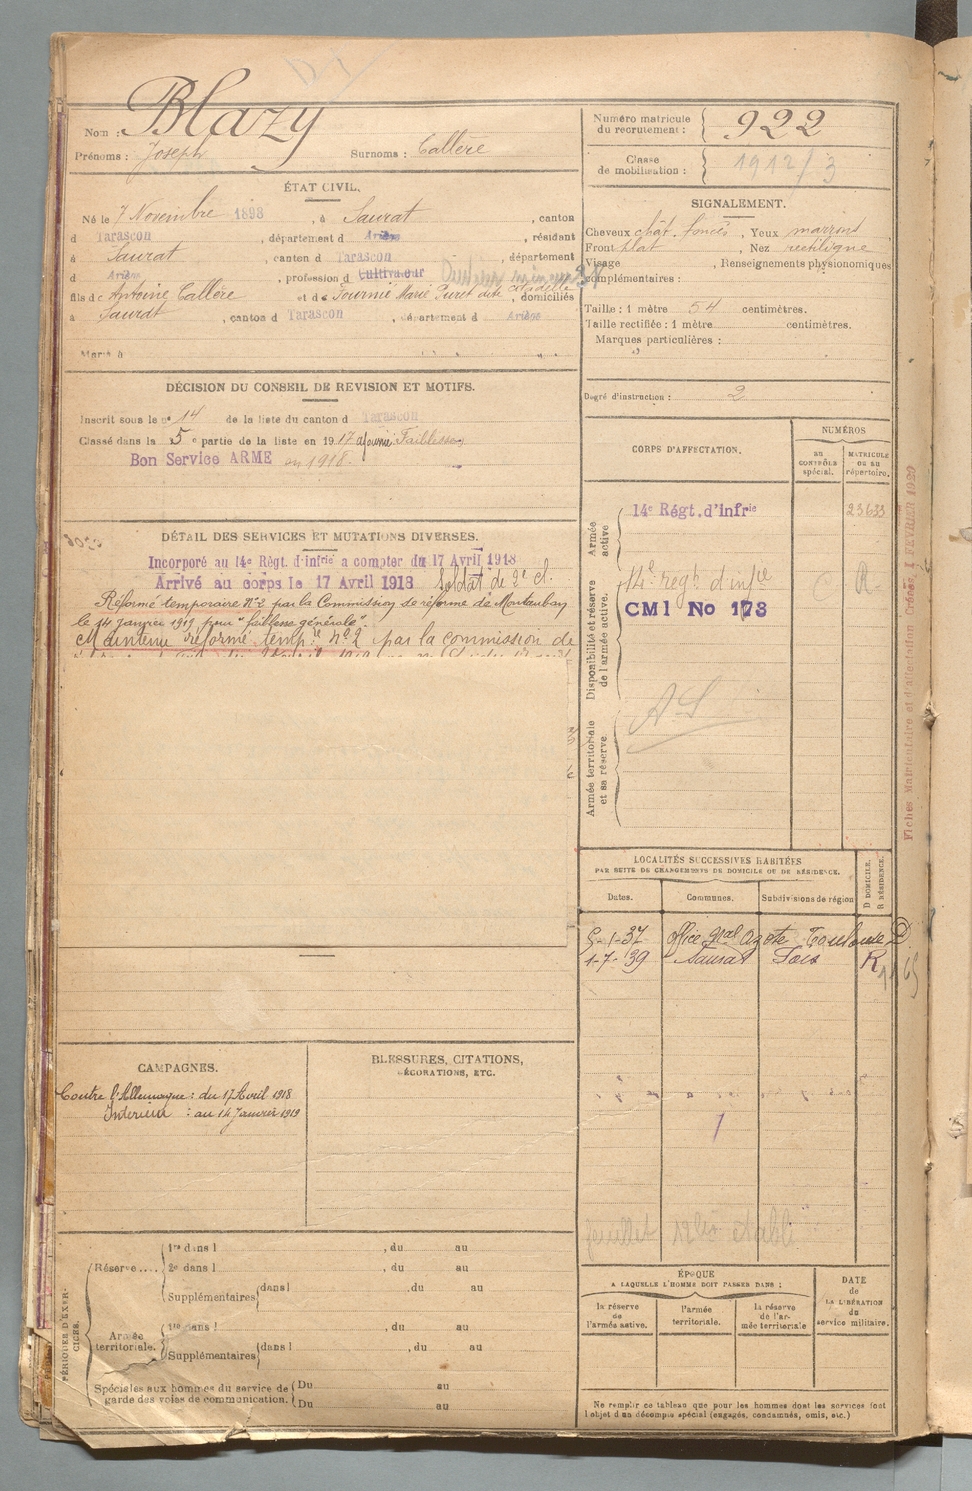 Nom : Blazy
Prénoms : Joseph Surnoms : Callère
ÉTAT CIVIL.
Né le 7 Novembre 1898, à Saurat, canton
d Tarascon, département d Ariège, résidant
à Saurat, canton d Tarascon, département
d Ariège, profession d Cultivateur
fils de Antoine Callère et de Fournié Marie Puret dite citadelle, domiciliés
à Saurat, canton d Tarascon, département d Ariège
Marié à
DÉCISION DU CONSEIL DE REVISION ET MOTIFS.
Inscrit sous le nº 14 de la liste du canton d Tarascon
Classé dans la 5e partie de la liste en 1917 ajourné. Faiblesse
Bon Service ARME en 1918.
DÉTAIL DES SERVICES ET MUTATIONS DIVERSES.
Incorporé au 14e Régt. d'infrie a compter du 17 Avril 1918
Arrivé au corps le 17 Avril 1918 Soldat de 2e cl.
Réformé temporaire Nº2 par la Commission de réforme de Montauban
le 14 janvier 1919 pour "faiblesse générale".
Maintenu réformé temp.re nº2 par la commission de
CAMPAGNES.
Contre l'Allemagne : du 17 Avril 1918
Intérieur : au 14 Janvier 1919
BLESSURES, CITATIONS,
DÉCORATIONS, ETC.
PÉRIODES D'EXERCICES.
Réserve....
1re dans l , du au
2e dans l , du au
Supplémentaires dans l , du au
Armée territoriale.
1re dans l , du au
Supplémentaires dans l , du au
Spéciales aux hommes du service de garde des voies de communication.
Du au
Du au
Numéro matricule
du recrutement : 922
Classe
de mobilisation : 1912/3
SIGNALEMENT.
Cheveux chât. foncés, Yeux marrons
Front plat, Nez rectiligne
Visage , Renseignements physionomiques
complémentaires :
Taille : 1 mètre 54 centimètres.
Taille rectifiée : 1 mètre centimètres.
Marques particulières :
Degré d'instruction : 2
CORPS D'AFFECTATION.
NUMÉROS
au
CONTRÔLE
spécial.
MATRICULE
ou au
répertoire.
Armée
active
14e Régt. d'infrie 23633
Disponibilité et réserve
de l'armée active.
14e regt d'infie R
CMI No 173
Armée territoriale
et sa réserve.
A.S
Fiches Matriculaire et d'affectation Créées, FÉVRIER 1920
LOCALITÉS SUCCESSIVES HABITÉES
PAR SUITE DE CHANGEMENTS DE DOMICILE OU DE RÉSIDENCE.
D DOMICILE.
R RÉSIDENCE.
Dates. Communes. Subdivisions de région
5-1-37 Office gral Azote Toulouse D
1-7-39 Saurat Foix R
ÉPOQUE
A LAQUELLE L'HOMME DOIT PASSER DANS :
la réserve
de
l'armée active.
l'armée
territoriale.
la réserve
de l'ar-
mée territoriale
DATE
de
LA LIBÉRATION
du
service militaire.
Ne remplir ce tableau que pour les hommes dont les services font
l'objet d'un décompte spécial (engagés, condamnés, omis, etc.)